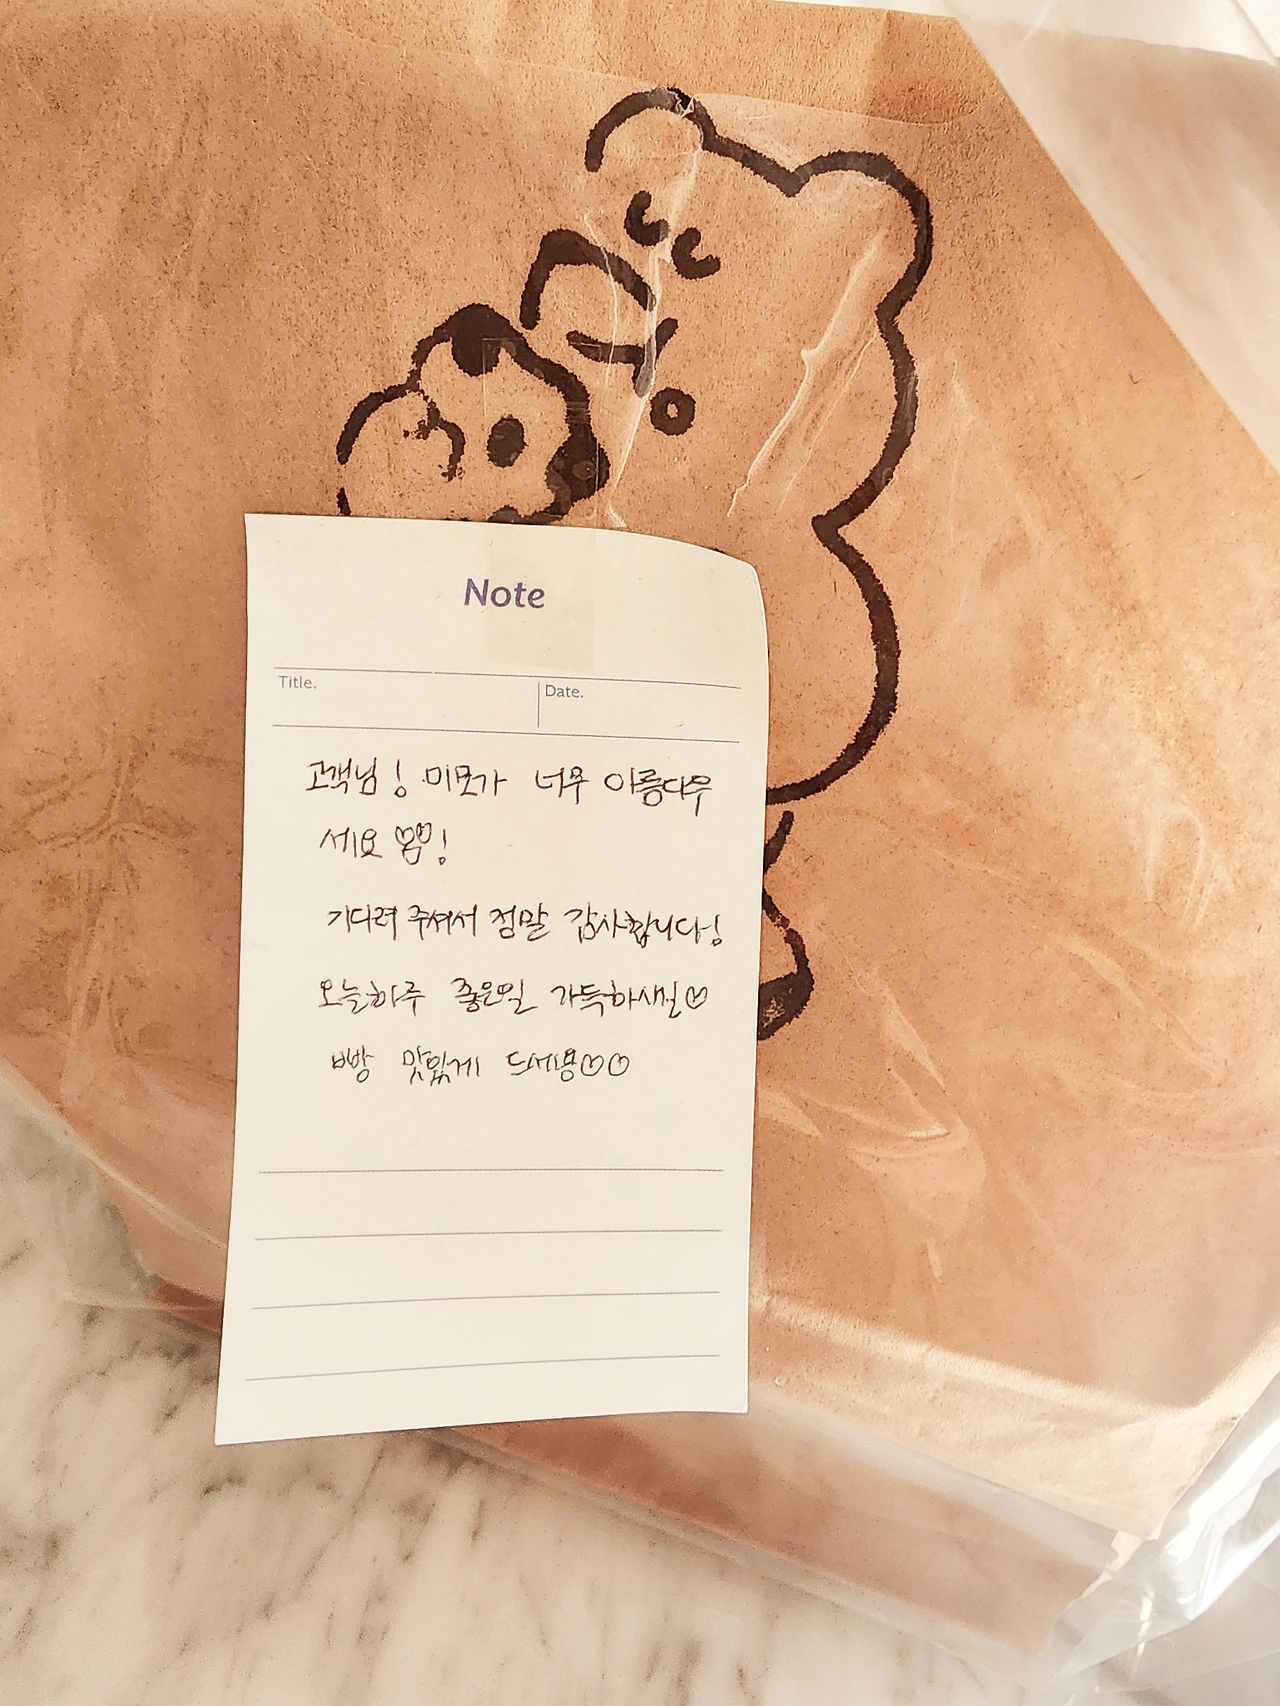 Note
Title.
Date.
고객님! 미모가 너무 아름다우
세요 !
기다려 주셔서 정말 감사합니다!
오늘하루 좋은일 가득하시길♡
빵 맛있게 드세용♡♡